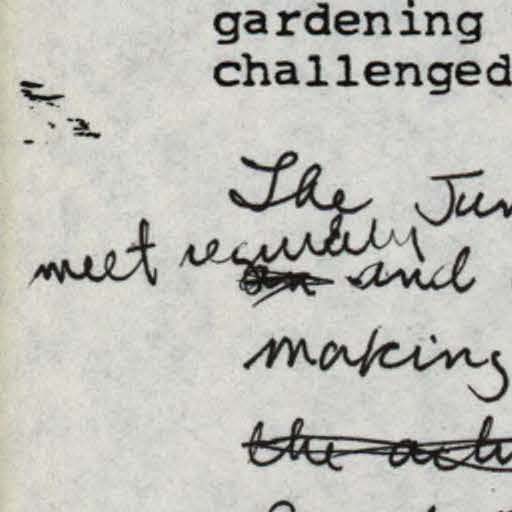 gardening
challenged
The Jun
meet regularly
and
making
the